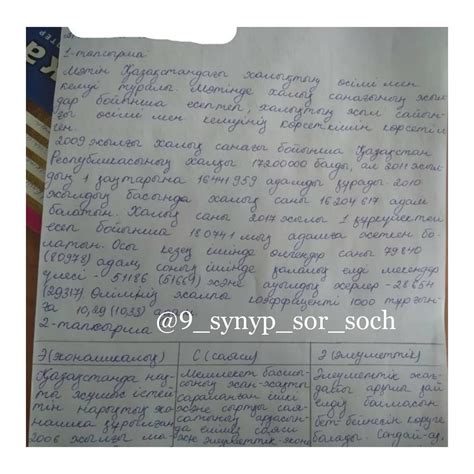 1-тапсырма:
Мәтін Қазақстандағы халықтың өсімі мен
кемуі туралы. Мәтінде халық санағының жыл
дар бойынша есептеп, халықтың жыл сайын
ғы өсімі мен кемуінің көрсеткішін көрсетіл
ген.
2009 жылғы халық санағы бойынша Қазақстан
Республикасының халқы 17200000 болды, ал 2011 жыл
дың 1 қаңтарына 16441959 адамды құрады. 2010
жылдың басында халық саны 16 204 617 адам
болатын. Халық саны 2017 жылғы 1 қыркүйектегі
есеп бойынша 18074,1 мың адамға жеткен бо-
латын. Осы кезең ішінде өлгендер саны 79840
(80978) адам, соның ішінде қаланың елді мекендер
үлесі - 51186 (51661) және ауылдық жерлер - 28654
(29317) Өлімнің жалпы коэффициенті 1000 тұрғын-
ға 10,29 (10,33)
@9_synyp_sor_soch
2-тапсырма
Э(экономикалық) С(саяси) Ә(әлеуметтік)
Қазақстанда нақ-
ты жұмыс істей
тін нарықтық эко
номика құрылған
2006 жылғы ма-
Мемлекет басшы-
сының жан-жақты
сараланған ішкі
және сыртқы сая-
сатының арқасын-
да еліміз саяси
және әлеуметтік-эконо
Әлеуметтік жағ-
дайы арқылы қай
елдің болмасын
бет бейнесін көруге
болады. Сондай-ақ,